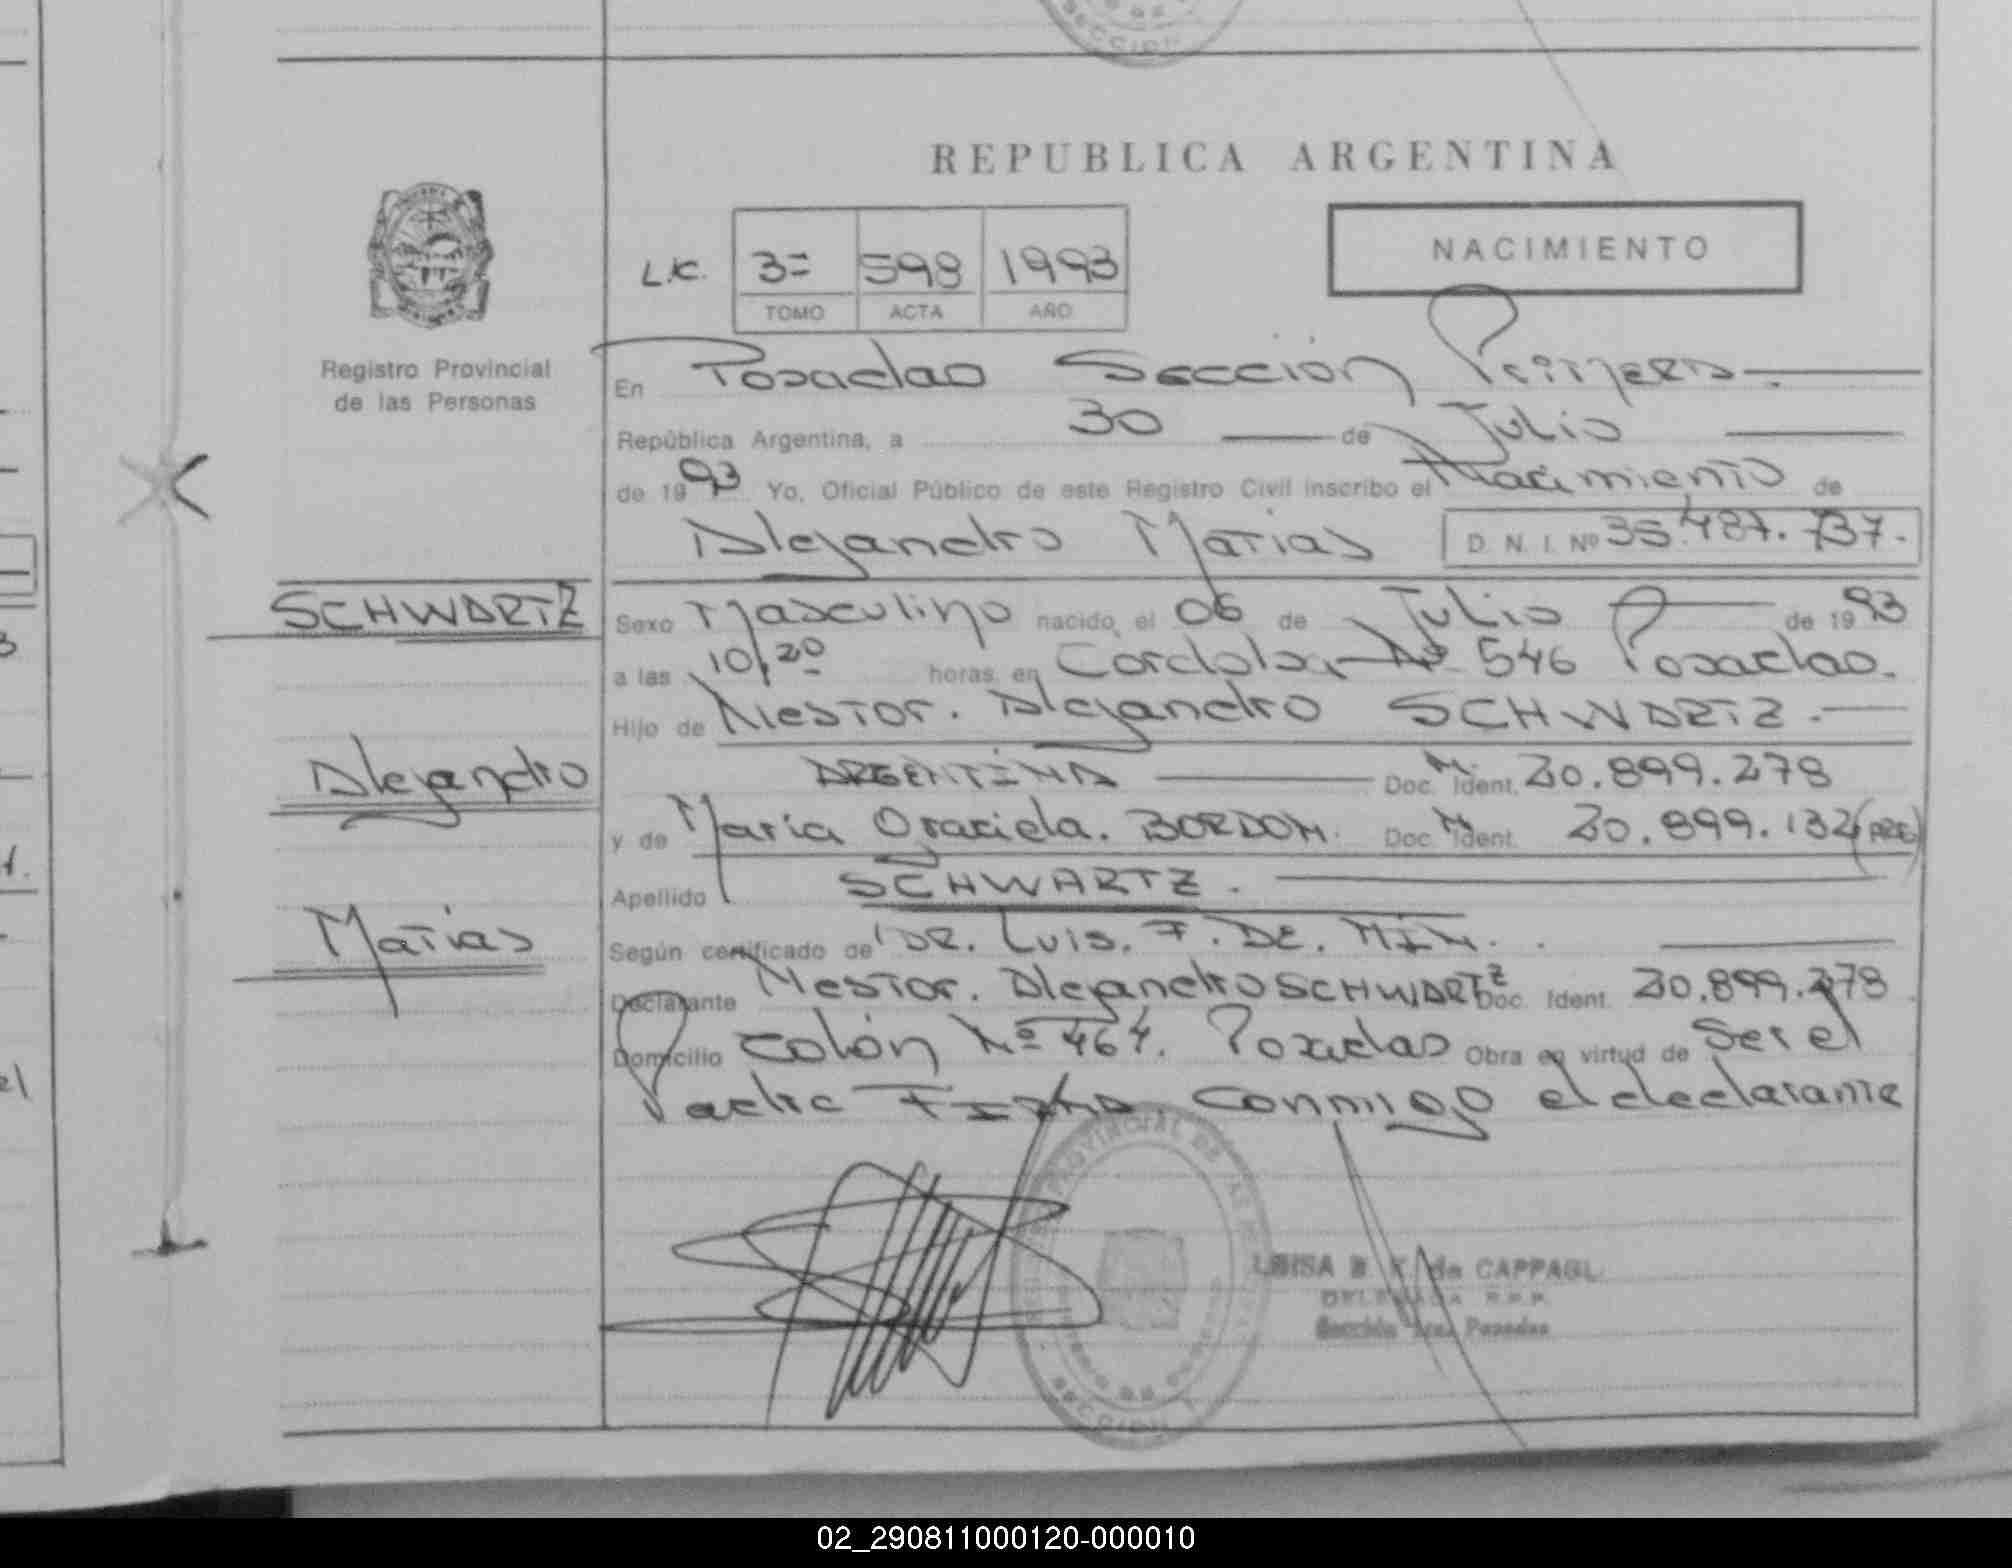 REPUBLICA ARGENTINA
NACIMIENTO
L.C. 3= 598 1993
TOMO ACTA AÑO
Registro Provincial
de las Personas
En Posadas Sección Primera
República Argentina, a 30 de Julio
de 1993 Yo, Oficial Público de este Registro Civil inscribo el Nacimiento de
Alejandro Matias D. N. I. Nº 35.487.737.
SCHWARTZ
Sexo Masculino nacido el 06 de Julio de 1993
a las 10,20 horas en Cordoba Nº 546 Posadas.
Hijo de Nestor. Alejandro SCHWARTZ.
Alejandro
ARGENTINA Doc. M. Ident. 20.899.278
y de Maria Graciela. BORDON. Doc. M. Ident. 20.899.132 (ARG)
Apellido SCHWARTZ.
Matias
Según certificado de DR. Luis. F. DE. MIN.
Declarante Nestor. Alejandro SCHWARTZ Doc. Ident. 20.899.278
Domicilio Colón Nº 464. Posadas Obra en virtud de Ser el
Padre Firma conmigo el declarante
REGISTRO PROVINCIAL DE LAS PERSONAS
SECCION
de CAPPAGL
DELEGADA R.P.P.
Sección 1ra. Posadas
SECCION
02_290811000120-000010